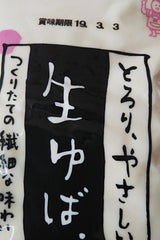 賞味期限 19. 3. 3
とろり、やさしい
生ゆば。
つくりたての
繊細な味わい